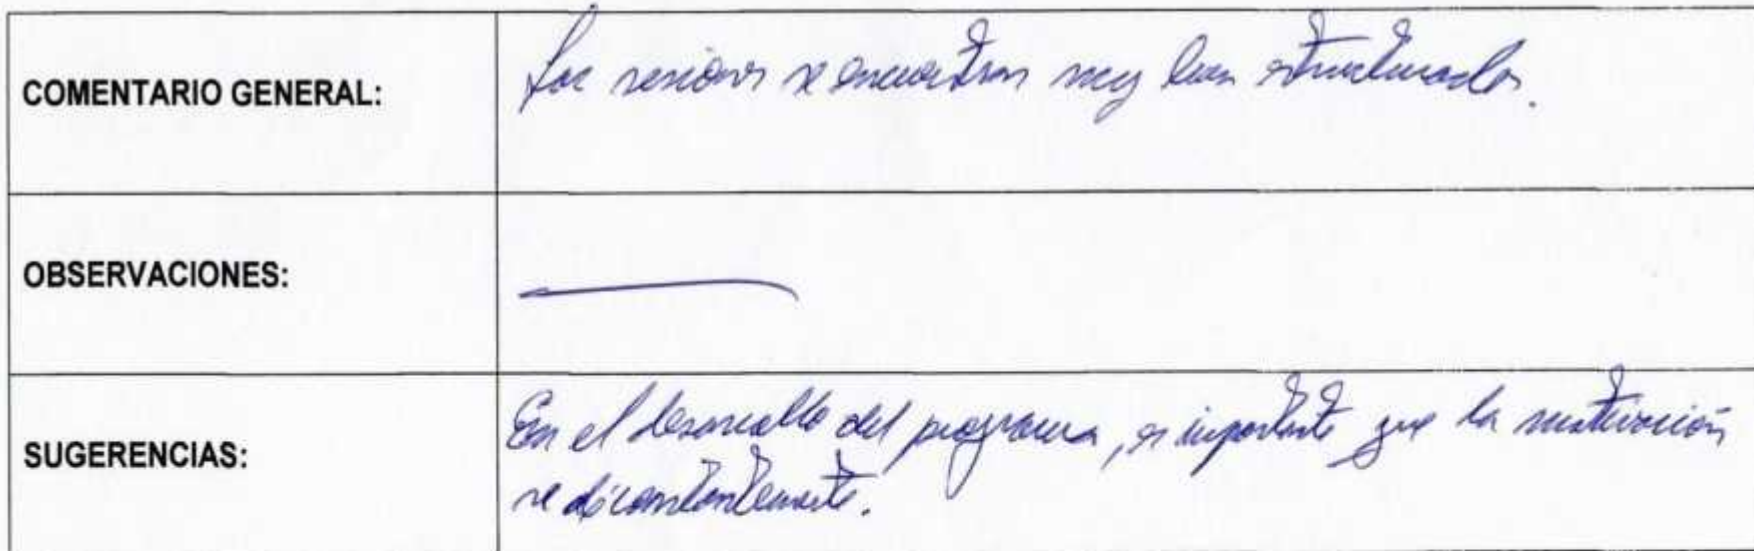 COMENTARIO GENERAL:
Las sesiones se encuentran muy bien estructuradas.
OBSERVACIONES:
SUGERENCIAS:
En el desarrollo del programa, es importante que la motivación
se dé constantemente.